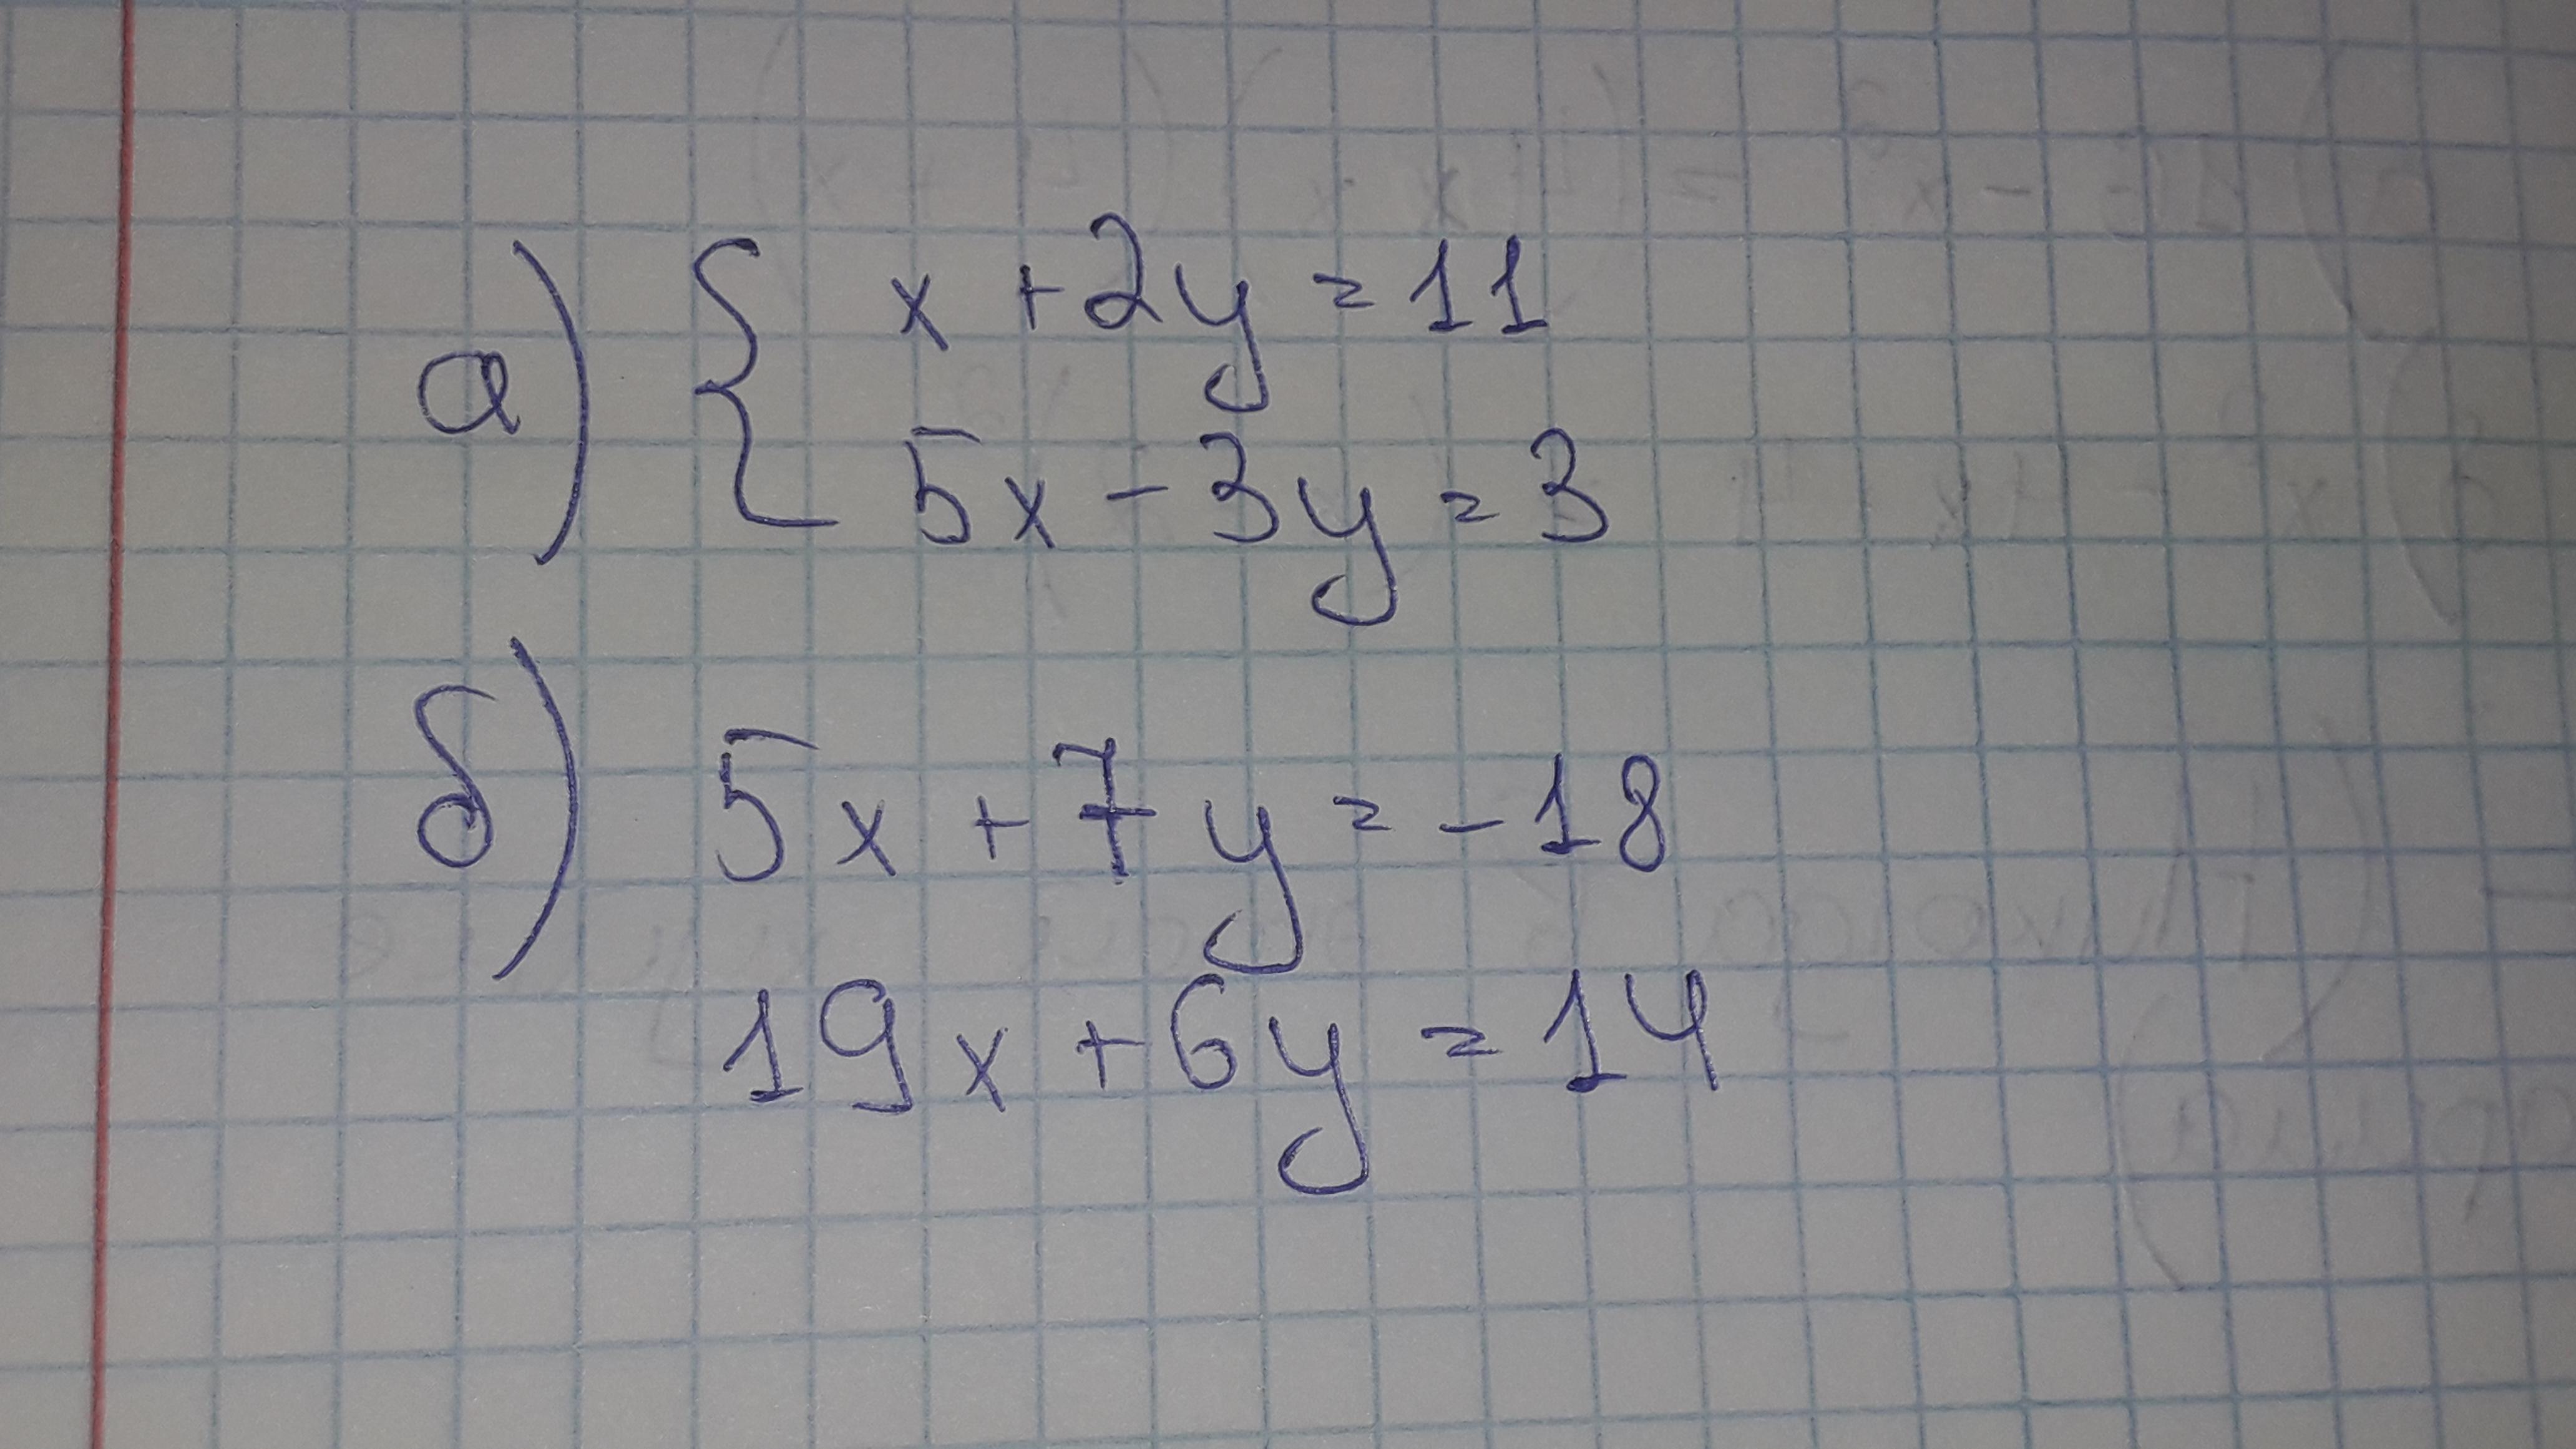 а) { x + 2y = 11
5x - 3y = 3
б) 5x + 7y = -18
19x + 6y = 14